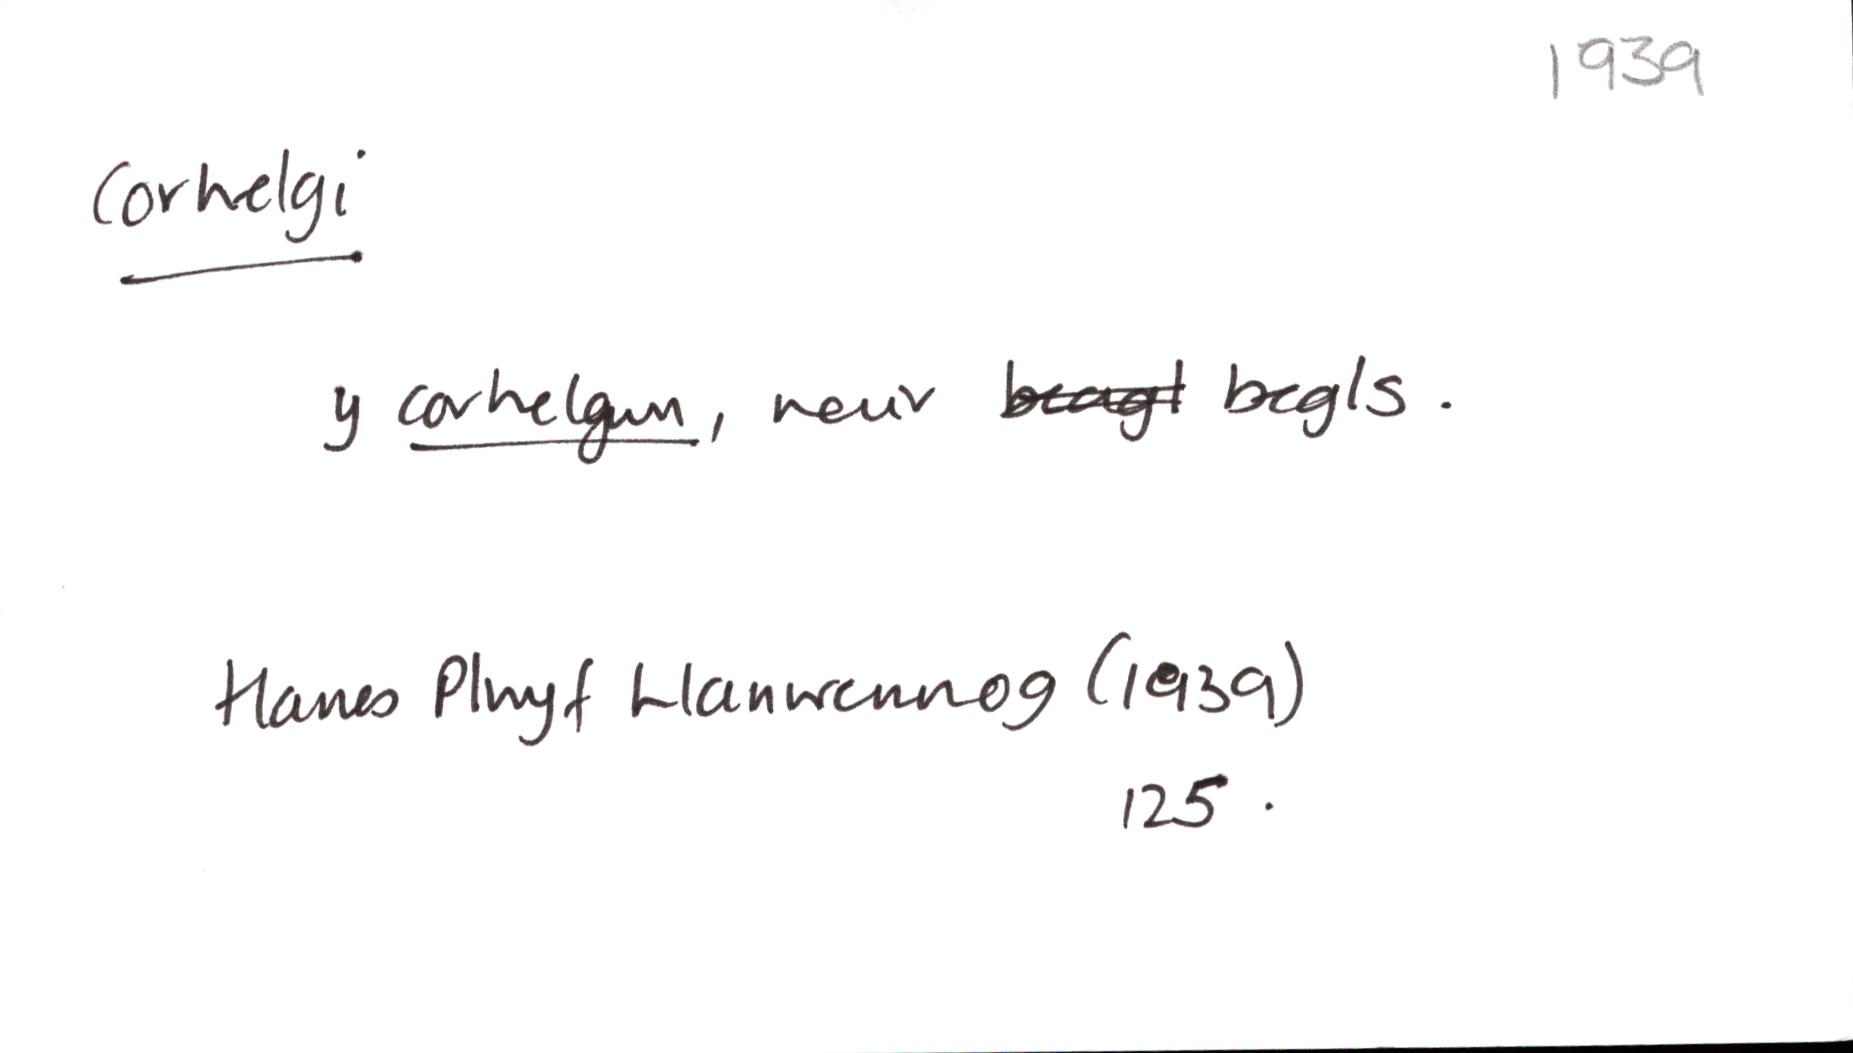 1939
Corhelgi
y corhelgwn, neu'r begls.
Hanes Plwyf Llanwennog (1939)
125.